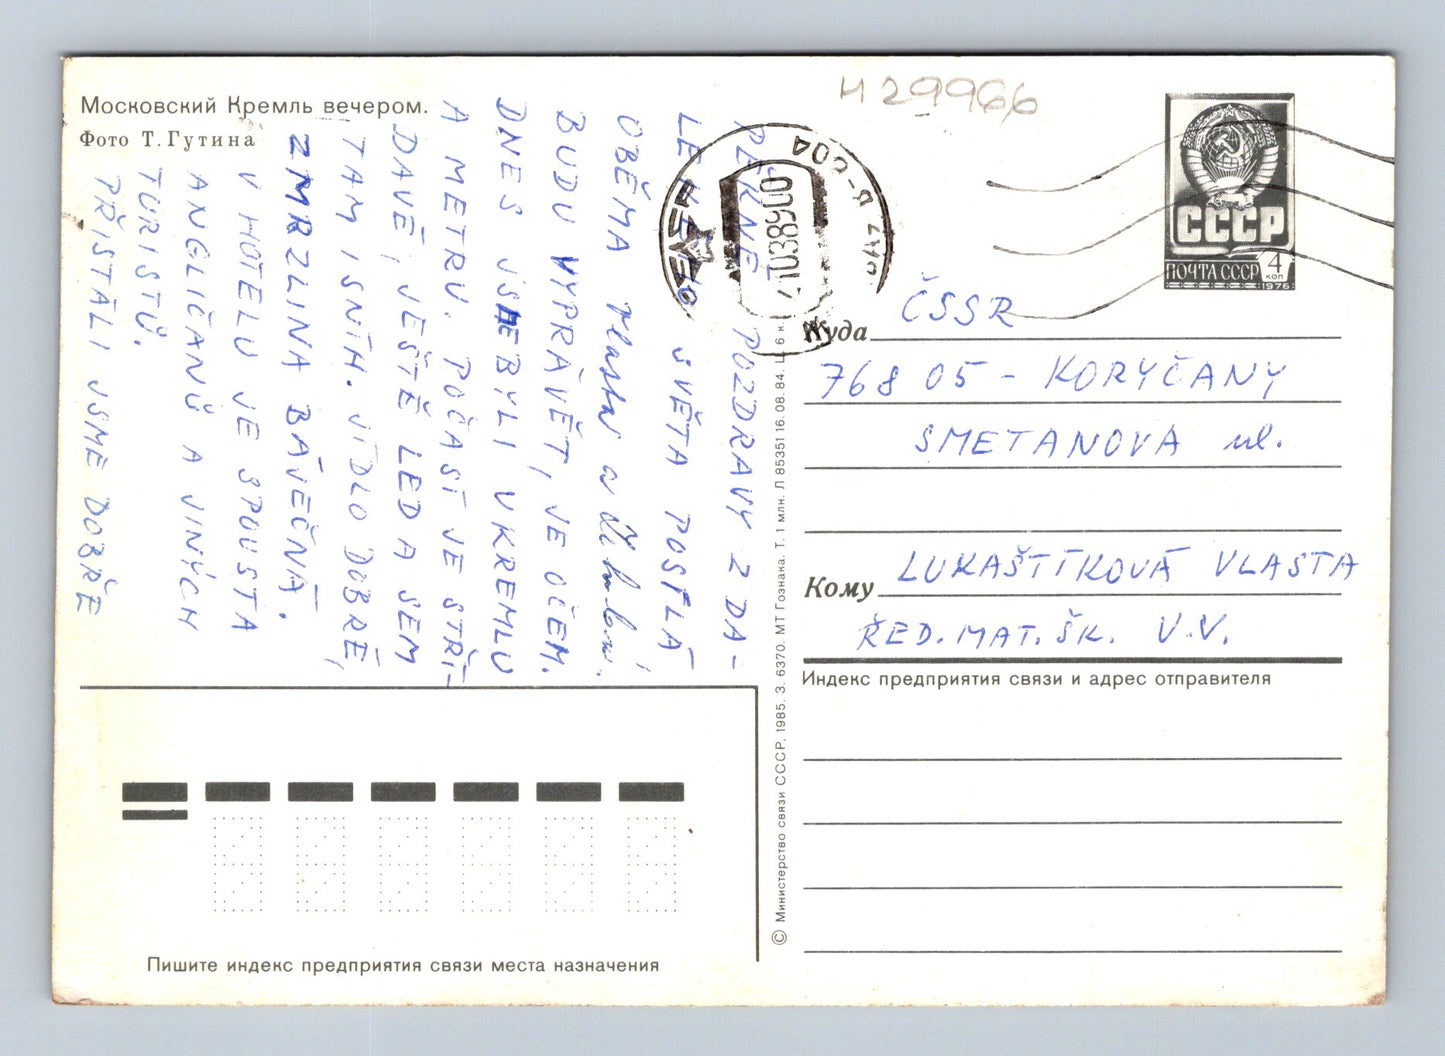 Московский Кремль вечером.
Фото Т. Гутина
Н 29966
СССР
ПОЧТА СССР 4 коп
1976
PĚKNÉ POZDRAVY Z DA-
LEKÉHO SVĚTA POSÍLÁ
OBĚMA Vlasta a
BUDU VYPRÁVĚT, JE OČEM.
DNES JSME BYLI V KREMLU
A METRU. POČASÍ JE STŘÍ-
DAVĚ, JEŠTĚ LED A SEM
TAM I SNÍH. JÍDLO DOBRÉ,
ZMRZLINA BÁJEČNÁ.
V HOTELU JE SPOUSTA
ANGLIČANŮ A JINÝCH
TURISTŮ.
PŘISTÁLI JSME DOBŘE
Куда ČSSR
768 05 - KORYČANY
SMETANOVA ul.
Кому LUKAŠTÍKOVÁ VLASTA
ŘED. MAT. ŠK. V.V.
Индекс предприятия связи и адрес отправителя
© Министерство связи СССР, 1985. З. 6370. МТ Гознака. Т. 1 млн. Л 85351 16.08.84. Ц. 6 к.
Пишите индекс предприятия связи места назначения